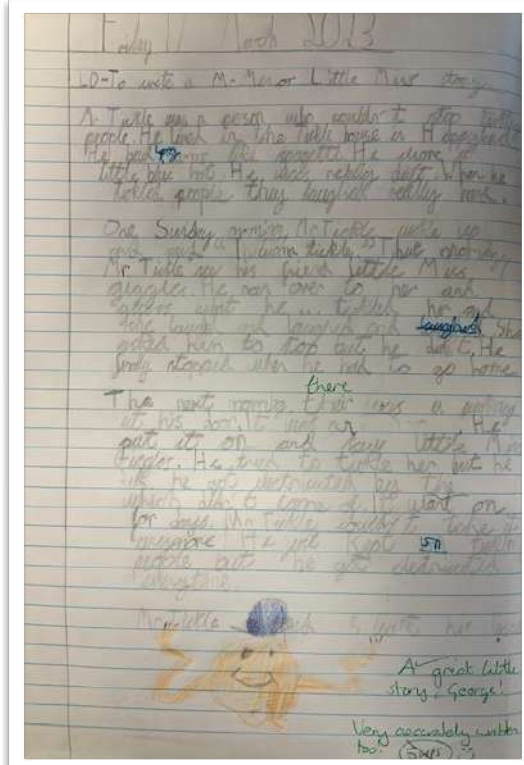 Friday 17 March 2023
LO-To write a Mr Men or Little Miss story.
Mr Tickle was a person who couldn't stop
people. He lived in the Tickle house in
He had like He drove a
little blue He was really daft. When he
tickled people they laughed really hard.
One Sunday morning Mr Tickle woke up
and said "I wanna tickle." That morning
Mr Tickle saw his friend Little Miss
giggles. He ran over to her and
went he... tickled her and
she laughed and laughed and laughed She
asked him to stop but he didn't. He
finally stopped when he had to go home
there
The next morning their was a
at his door. It was a He
put it on and saw Little Miss
Giggles. He tried to tickle her but he
he got distracted by The
which didn't come off. It went on
for days. Mr Tickle couldn't tickle
anymore He just kept on
people but he got distracted
everytime.
Mr Tickle
A great little
story, George!
Very accurately written
too.